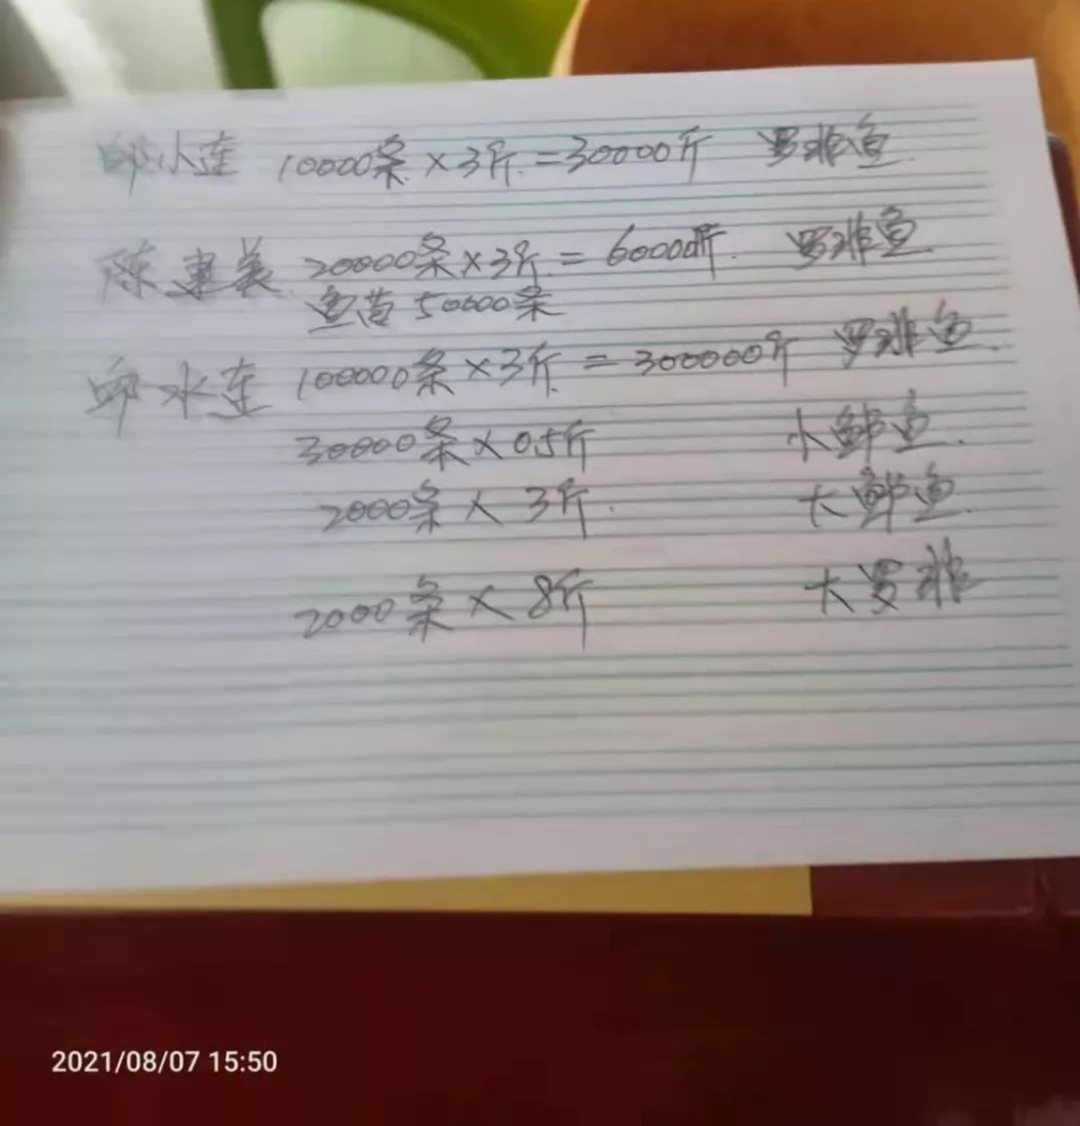 邱小连 10000条×3斤=30000斤 罗非鱼
陈惠美 20000条×3斤=60000斤. 罗非鱼
鱼苗 50000条
邱水连 100000条×3斤=300000斤 罗非鱼.
30000条×0.5斤 小鲫鱼.
2000条×3斤. 大鲫鱼.
2000条×8斤 大罗非
2021/08/07 15:50